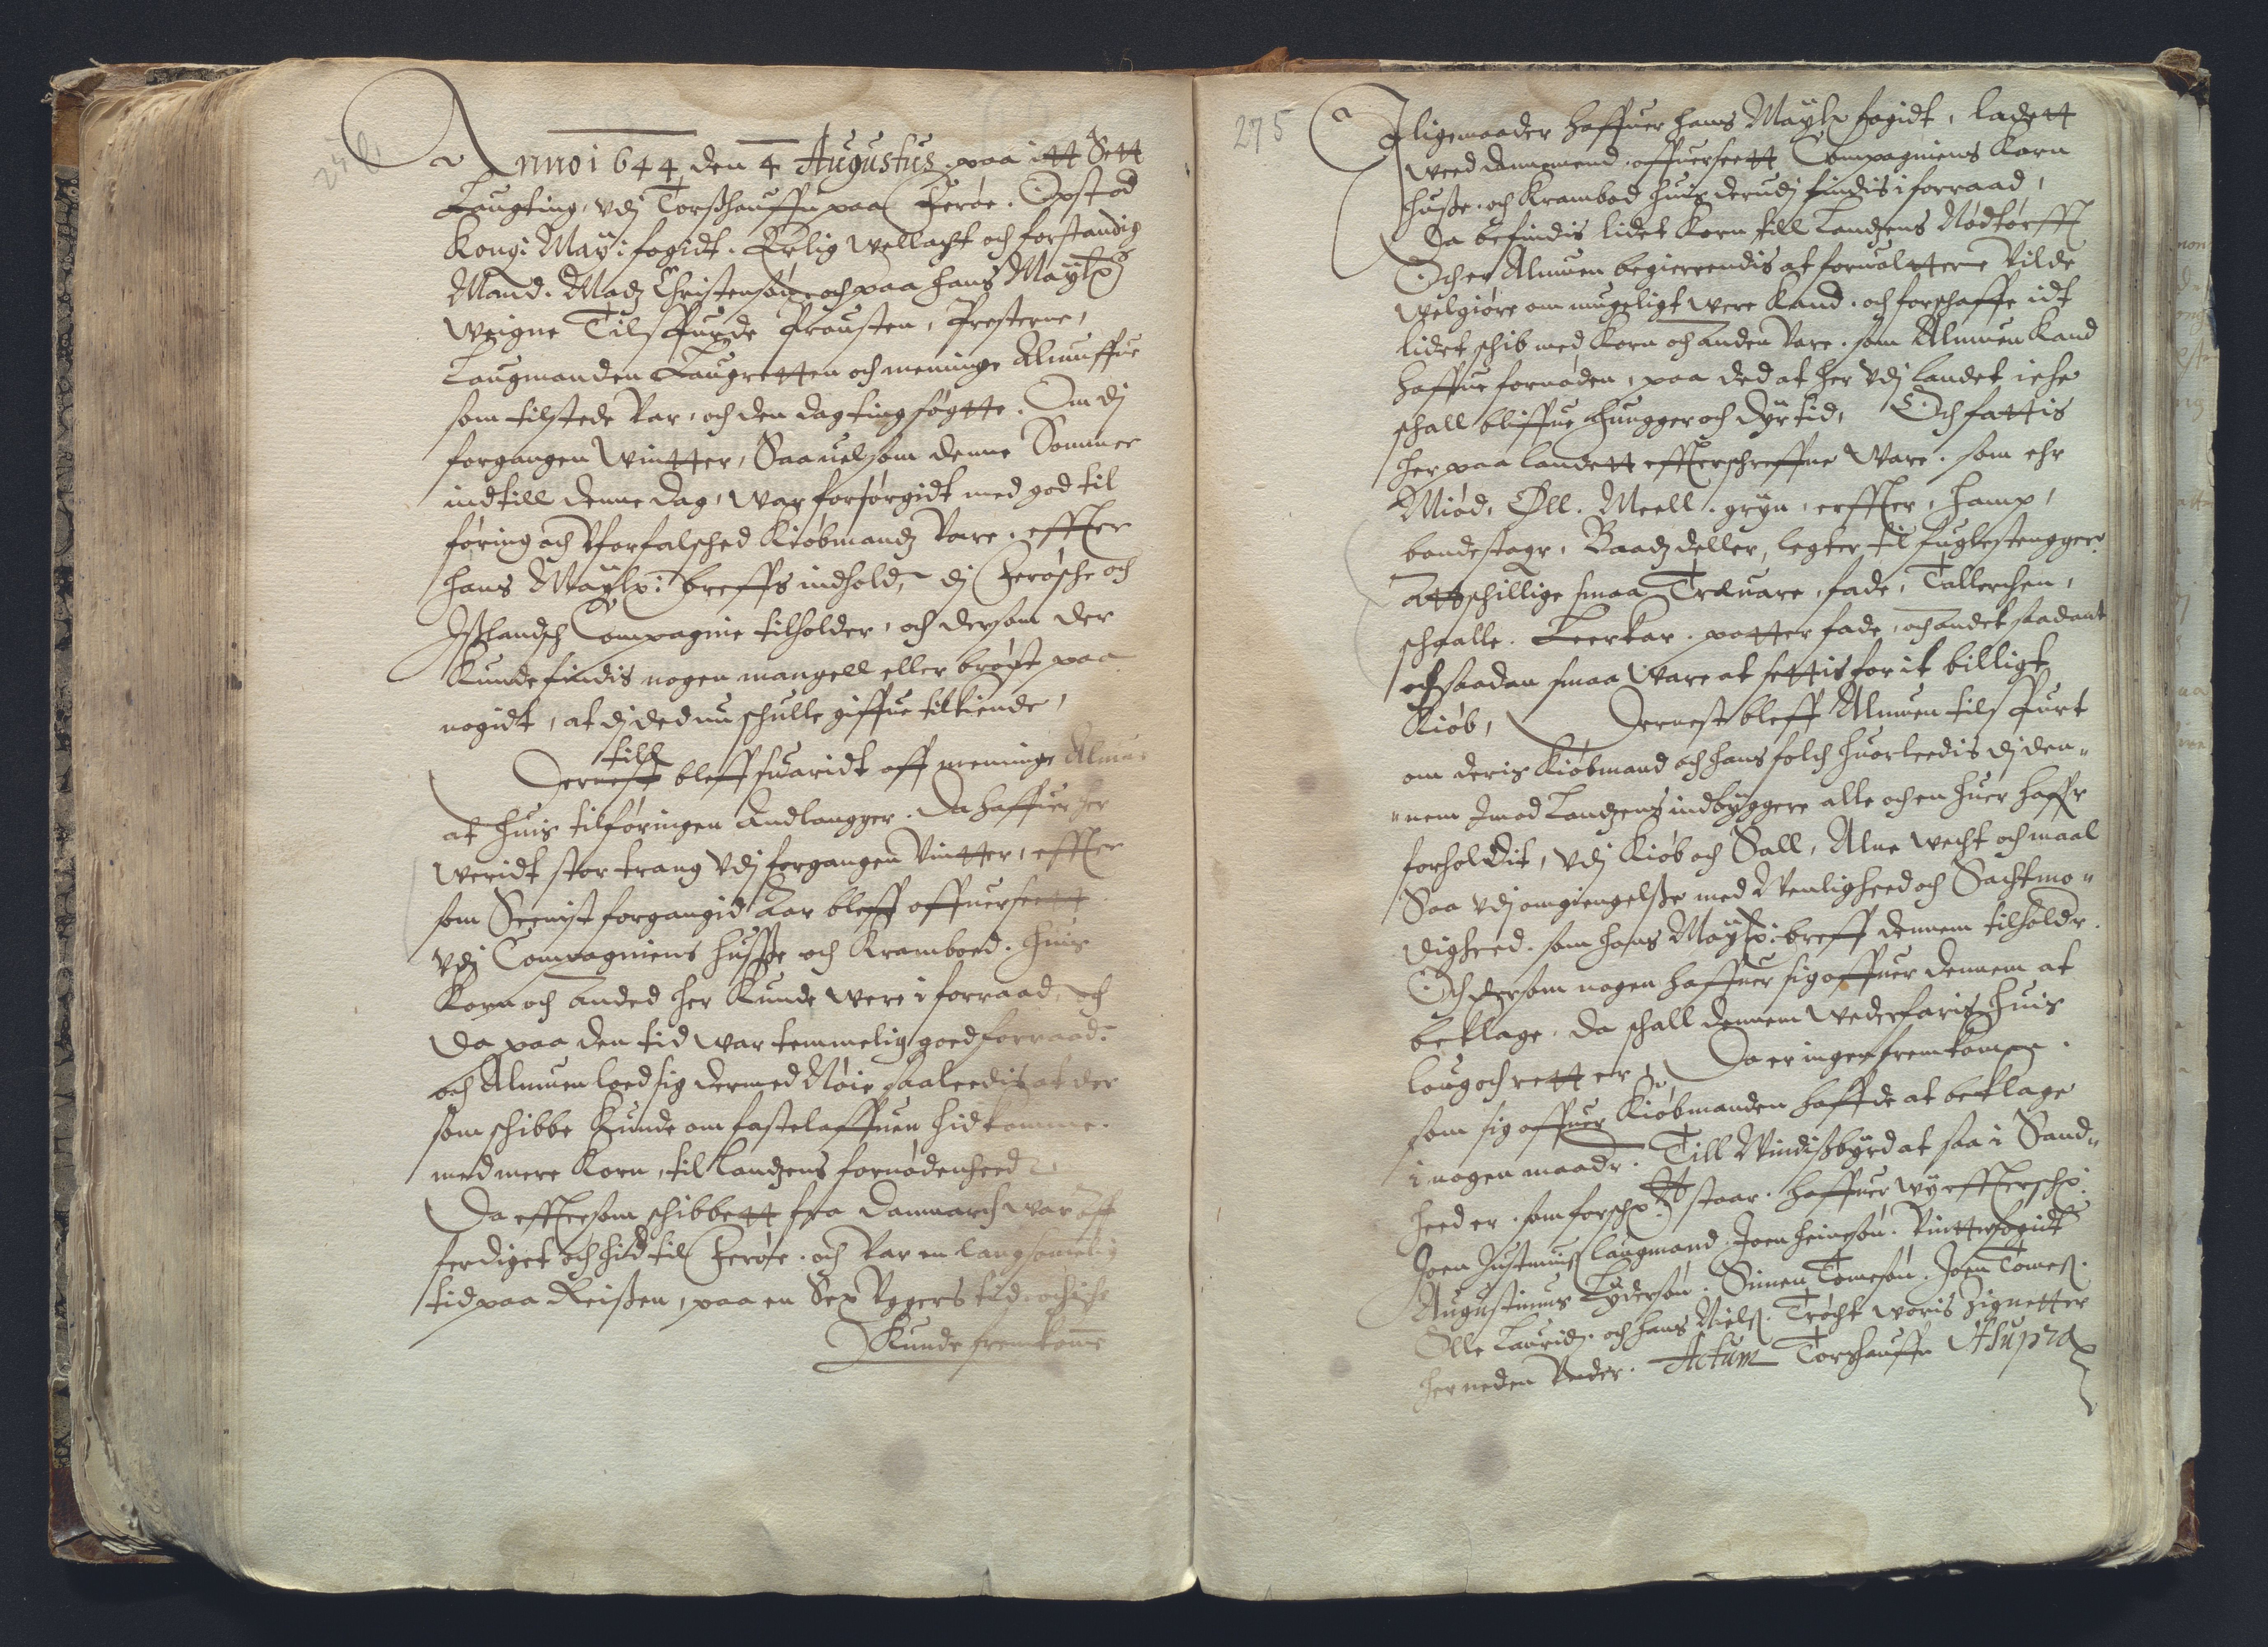 Anno 1644 den 4 Augustus. paa itt Sett
Laugting, vdj Torßhauffn paa Ferøe. Opstod
Kong: May: fogidt. Erlig wellacht och forstandig
Mand. Madz Christensøn, och paa hans Maytz
weigne Tilspurde Prousten, Presterne,
Laugmanden Laugretten och meninge Almuffue
som tilstede var, och den dag ting søgtte. Om dj
forgangen Wintter, Saauelsom denne Sommer
indtill denne dag, war forsørgidt med god til
føring och Vforfalsched Kiøbmandz Vare, effter
hans Maytz: breffs indhold, dj Ferøsche och
Ißlandsch Compagnie tilholder, och dersom der
Kunde findis nogen mangell eller brøst paa
nogidt, at dj ded nu schulle giffue tilkiende,
till
Dernest bleff suaridt aff meninge Almu
at huis tilføringen Andlangger. Da haffuer her
weridt stor trang vdj forgangen Vintter, effter
som Seenist forgangid Aar bleff offuerseett
vdj Compagniens hußße och Kramboed. huis
Korn och anded her Kunde were i forraad, och
da paa den tid war temmelig goed forraad.
och Almuen loed sig dermed Nøie saaleedis at der
som schibbe Kunde om fastelaffuen hid komme.
med mere Korn, til landzens fornødenheed
Da efftersom schibbett fra Danmarch war aff
ferdiget och hid til Ferøe. och var en langsommelig
tid paa Reißen, paa en Sex Vggers tid. och iche
Kunde fremkome
275
I ligemaader haffuer hans Maytz fogidt, ladett
weed dannemend offuerseett Compagniens Korn
huße, och Krambod huis derudj findis i forraad,
Da befindis lidet Korn till Landzens Nødtørfft
Och er Almuen begierendis at foruoltterne vilde
welgiøre om mugeligt were Kand. och forschaffe idt
lidet schib med Korn och anden Vare. som Almuen Kand
haffue fornøden, paa ded at her vdj landet iche
schall bliffue hungger och dyrtid, Och fattis
her paa landett effterschreffne Vare. som ehr
Miød, Øll. Meell. gryn, erffter, hamp,
bandestager, Baadz deller, legter til fuglestengger.
attschillige smaa Træuare, fade, Tallerchen,
schaalle. Leerkar. potter fade, och andet saadant
och saadan smaa Vare at settis for it billigt
Kiøb, Dernest bleff Almuen tilspurt
om deris Kiøbmand och hans folch huorleedis dj den„
„nem Imod Landzens indbyggere alle och en huer haffr
forholdit, vdj Kiøb och Sall, Alne wecht och maal
Saa vdj omgiengelße med Venligheed och Sachtmo„
digheed. som hans Maytz: breff dennem tilholder.
Och dersom nogen haffuer sig offuer dennem at
beklage. da schall dennem wederfaris huis
loug och rett er, Da er ingen fremkomen.
som sig offuer Kiøbmanden haffde at beklage
i nogen maader. Till Vindißbyrd at saa i Sand„
heed er. som forschr: staar. haffuer wy effterschr:
Joen Justinuß laugmand. Joen heineson. Vintterfogidt
Augustinus Tyderson. Simen Tomeson. Joen Tomeß.
Olle Lauridz. och hans Nielß. Trøcht woris Zignetter
her neden vnder. Actum Torßhauffn Vt supra